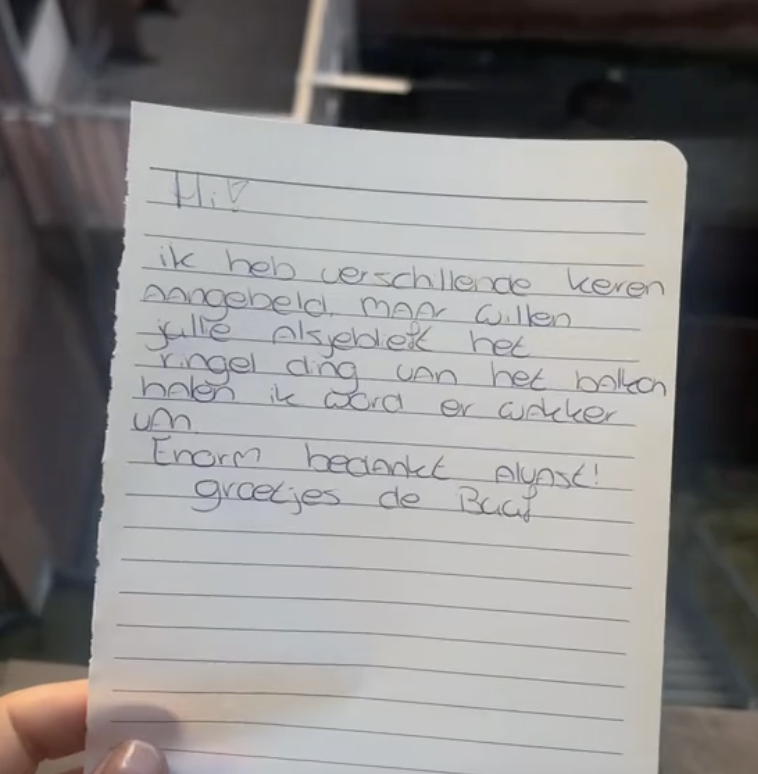 Hi♡
ik heb verschillende keren
aangebeld, maar willen
jullie alsjeblieft het
ringel ding van het balkon
halen ik word er wakker
van
Enorm bedankt alvast!
groetjes de Buuf